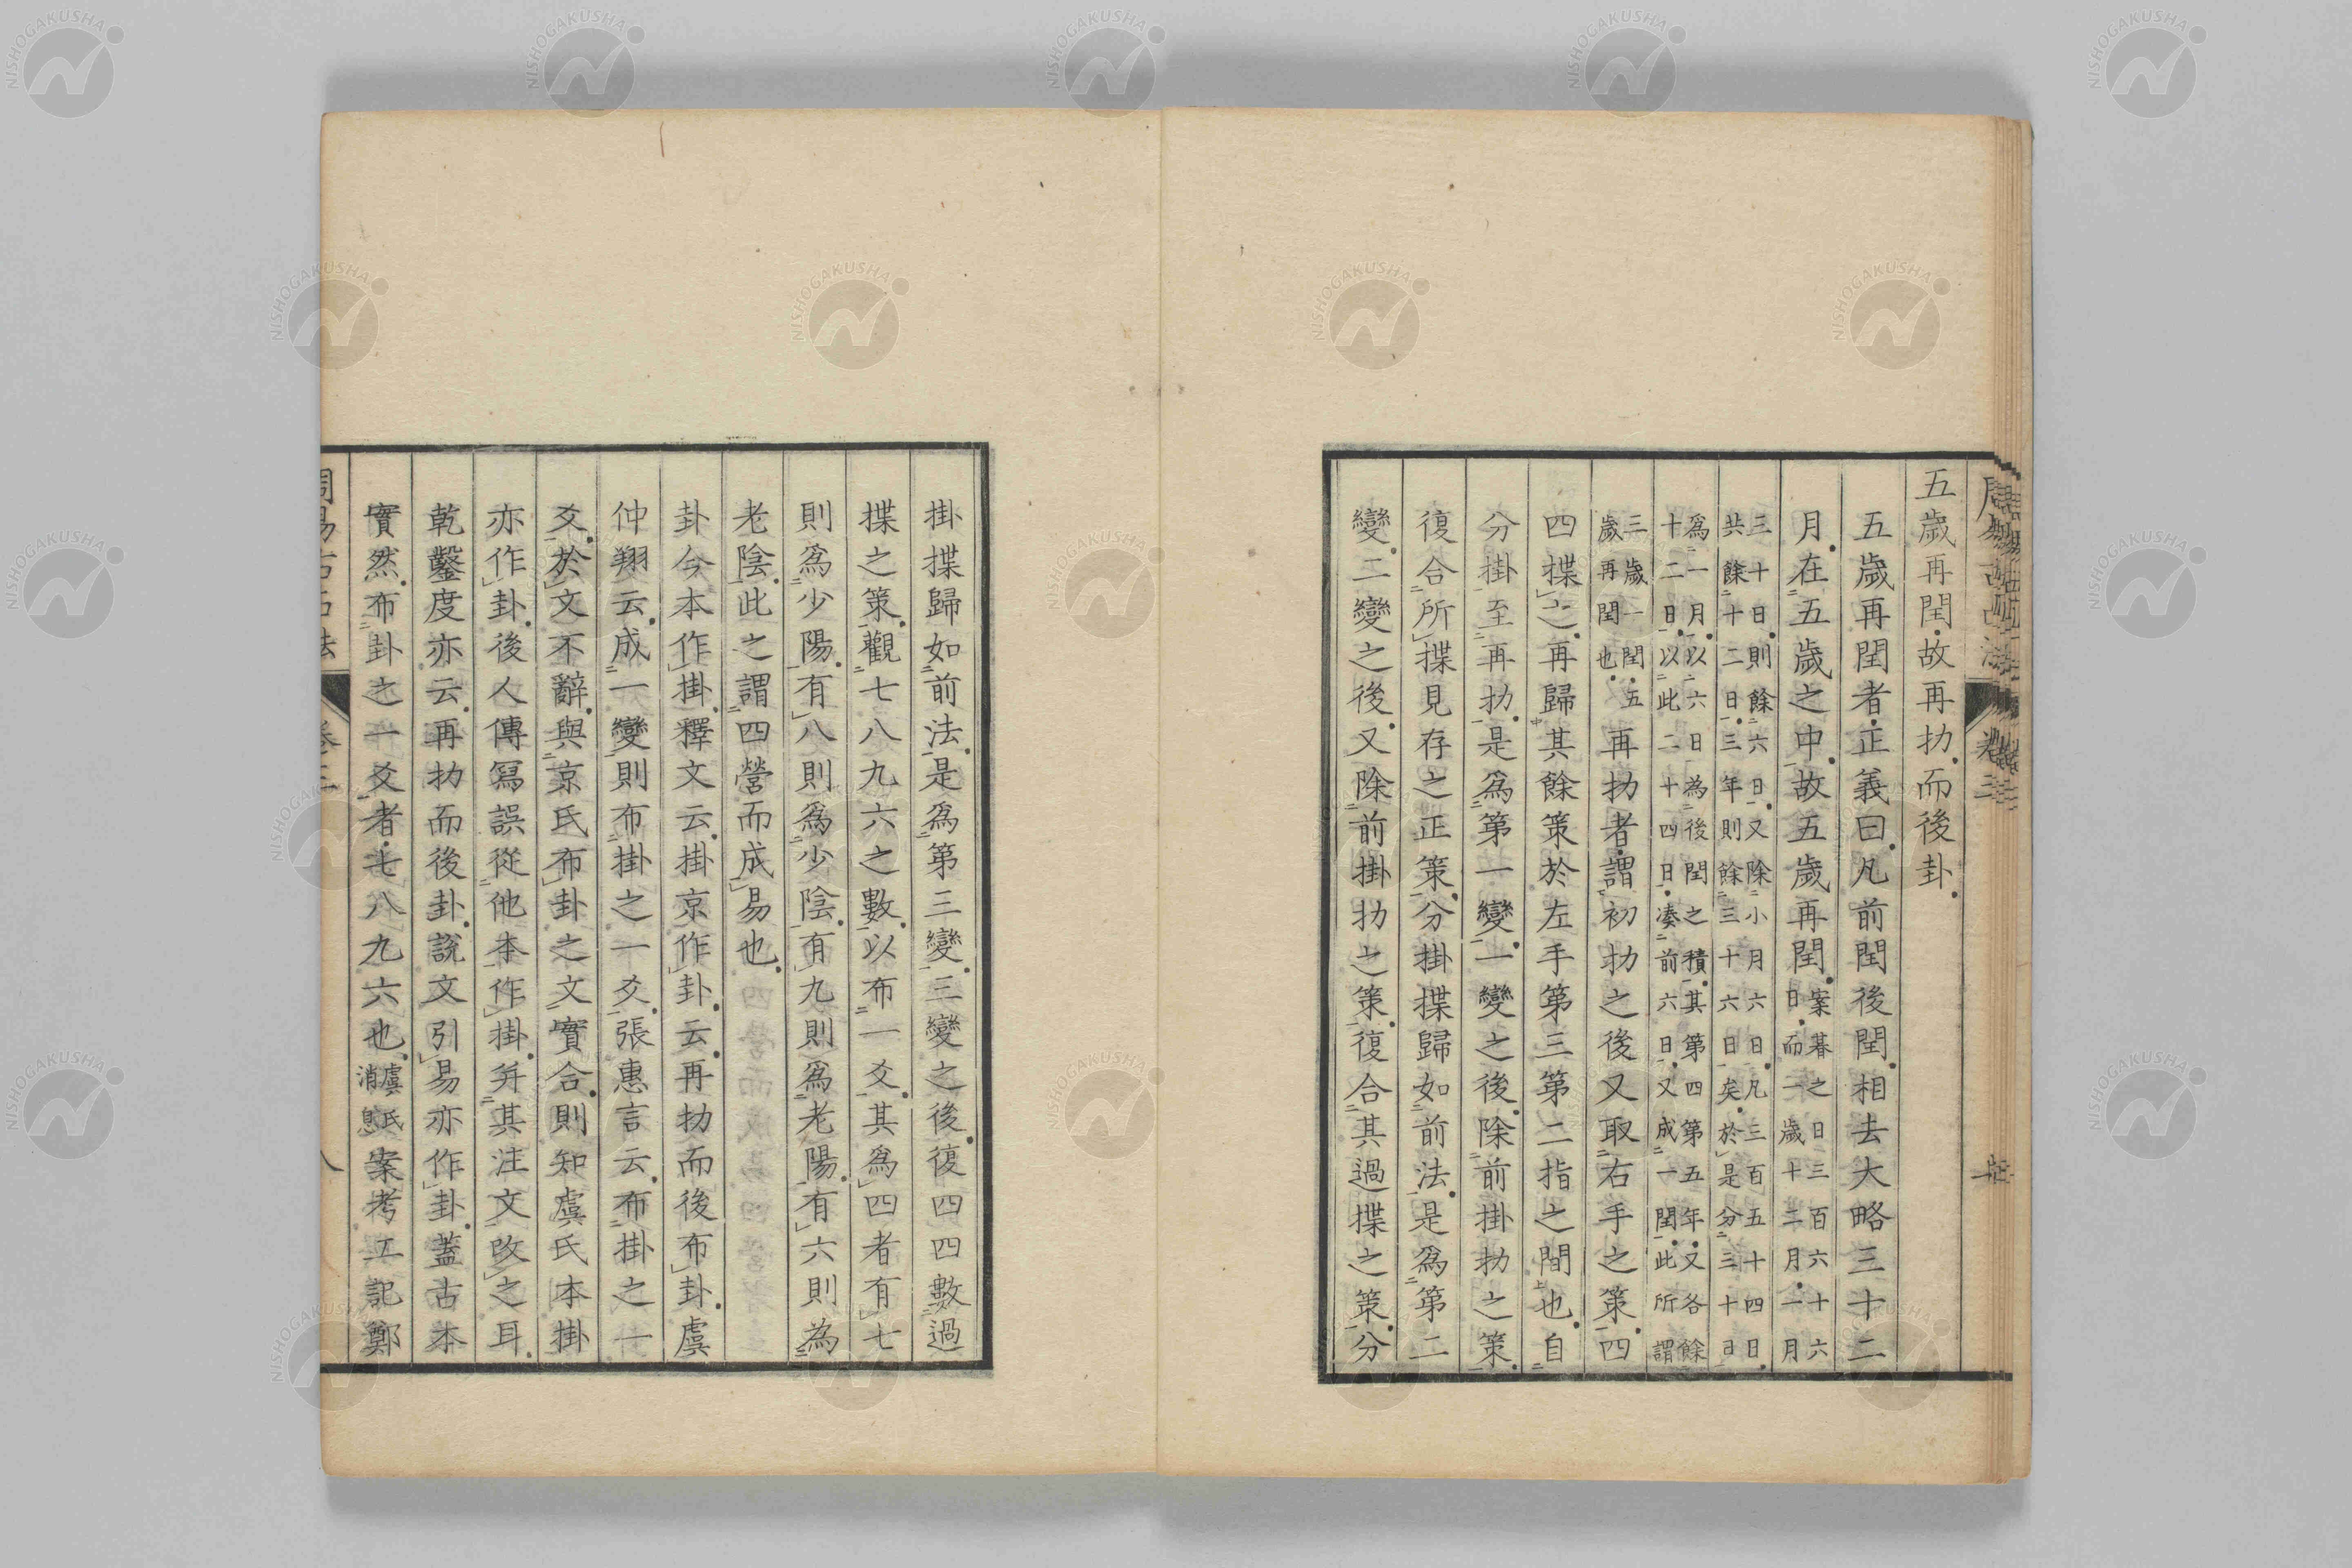 五歲再閏故再扐而後卦
五歲再閏者正義曰凡前閏後閏相去大略三十二
月在五歲之中故五歲再閏案朞之日三百六十六
日而一歲十二月一月
三十日則餘六日又除小月六日凡三百五十四日
共餘十二日三年則餘三十六日矣於是分三十日
爲一月以六日為後閏之積其第四第五年又各餘
十二日以此二十四日湊前六日又成一閏此所謂
三歲一閏五
歲再閏也再扐者謂初扐之後又取右手之策四
四揲之再歸其餘策於左手第三第二指之間也自
分掛至再扐是爲第一變一變之後除前掛扐之策
復合所揲見存之正策分掛揲歸如前法是爲第二
變二變之後又除前掛扐之策復合其過揲之策分
掛揲歸如前法是爲第三變三變之後復四四數過
揲之策觀七八九六之數以布一爻其爲四者有七
則爲少陽有八則爲少陰有九則爲老陽有六則為
老陰此之謂四營而成易也
卦今本作掛釋文云掛京作卦云再扐而後布卦虞
仲翔云成一變則布掛之一爻張惠言云布掛之一
爻於文不辭與京氏布卦之文實合則知虞氏本掛
亦作卦後人傳寫誤從他本作掛并其注文改之耳
乾鑿度亦云再扐而後卦說文引易亦作卦蓋古本
實然布卦之一爻者七八九六也虞氏
消息案考工記鄭
周易古占法
卷三
八
NISHOGAKUSHA